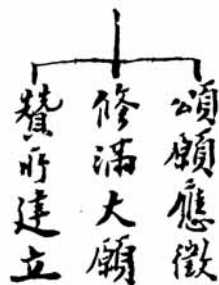 頌願應徵
修滿大願
贊所建立